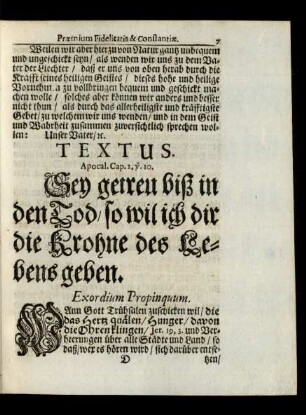 Præmium Fidelitatis & Constantiæ. 7
Weilen wir aber hierzu von Natur gantz unbequem
und ungeschickt seyn / als wenden wir uns zu dem Va-
ter der Liechter / daß er uns von oben herab durch die
Krafft seines heiligen Geistes / dieses hohe und heilige
zu vollbringen bequem und geschickt ma-
chen wolle / solches aber können wir anders und besser
nicht thun / als durch das allerheiligste und kräfftigste
Gebet / zu welchem wir uns wenden / und in dem Geist
und Wahrheit zusammen zuversichtlich sprechen wol-
len: Unser Vater / ꝛc.
TEXTUS.
Apocal. Cap. 2, ℣. 10.
Sey getreu biß in
den Tod / so wil ich dir
die Krohne des Le-
bens geben.
Exordium Propinquum.
WAnn Gott Trübsalen zuschicken wil / die
das Hertz quälen / Hunger / davon
die Ohren klingen / Jer. 19, 3. und Ver-
heerungen über alle Städte und Land / so
daß / wer es hören wird / sich darüber entse-
D tzen /